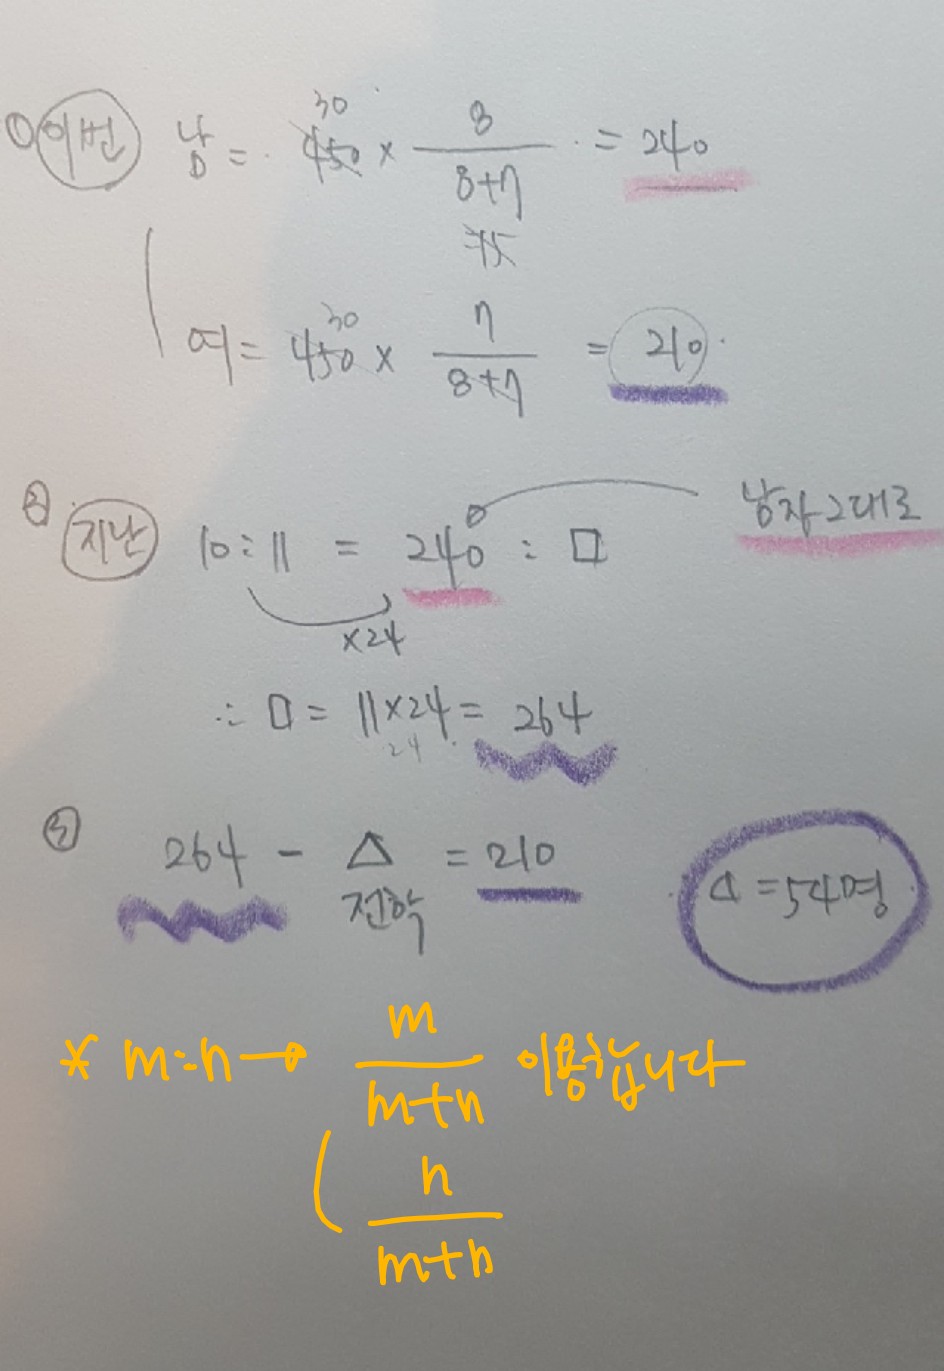 ① 이번 남 = 450 30 × 8 / 8+7 = 240
=15
여 = 450 30 × 7 / 8+7 = 210
② 지난 10 : 11 = 240 : □ 남자그대로
×24
∴ □ = 11×24 = 264
24
③ 264 - △ = 210 △ = 54명
전학
* m:n → m / m+n 이용합니다
n / m+n